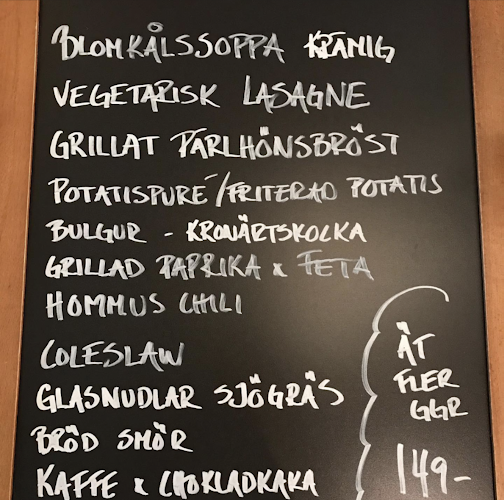 BLOMKÅLSSOPPA KRÄMIG
VEGETARISK LASAGNE
GRILLAT PÄRLHÖNSBRÖST
POTATISPURÉ/FRITERAD POTATIS
BULGUR - KRONÄRTSKOCKA
GRILLAD PAPRIKA & FETA
HOMMUS CHILI
COLESLAW
GLASNUDLAR SJÖGRÄS
BRÖD SMÖR
KAFFE & CHOKLADKAKA
ÄT
FLER
GGR
149-